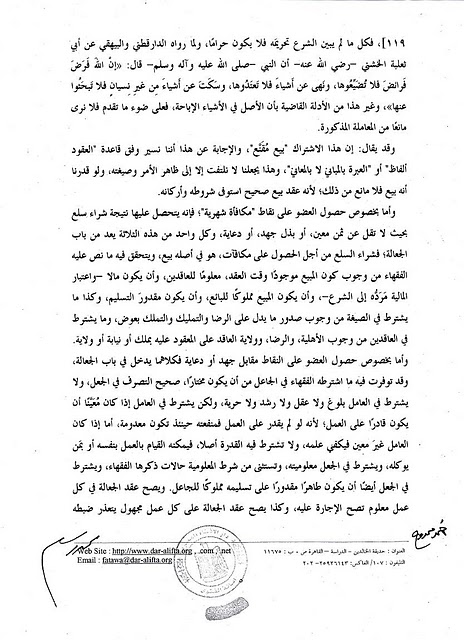 ١١٩]، فكل ما لم يبين الشرع تحريمَه فلا يكون حرامًا، ولما رواه الدارقطني والبيهقي عن أبي
ثعلبة الخشني –رضي الله عنه– أن النبي –صلى الله عليه وآله وسلم– قال: «إنَّ اللهَ فَرَضَ
فَرائضَ فلا تُضَيِّعُوها، ونَهى عن أشياءَ فلا تَعتَدُوها، وسكَتَ عن أشياءَ مِن غيرِ نِسيانٍ فلا تَبحَثُوا
عنها»، وغير هذا من الأدلة القاضية بأن الأصل في الأشياء الإباحة، فعلى ضوء ما تقدم فلا نرى
مانعًا من المعاملة المذكورة.
وقد يقال: إن هذا الاشتراك "بيع مُقَنَّع"، والإجابة عن هذا أننا نسير وفق قاعدة "العقود
ألفاظ" أو "العبرة بالمباني لا بالمعاني"، وهذا يجعلنا لا نلتفت إلا إلى ظاهر الأمر وصيغته، ولو قدرنا
أنه بيع فلا مانع من ذلك؛ لأنه عقد بيع صحيح استوفى شروطه وأركانه.
وأما بخصوص حصول العضو على نقاط "مكافأة شهرية"؛ فإنه يتحصل عليها نتيجة شراء سلع
بحيث لا تقل عن ثمن معين، أو بذل جهد، أو دعاية، وكل واحد من هذه الثلاثة يعد من باب
الجعالة؛ فشراء السلع من أجل الحصول على مكافآت، هو في أصله بيع، ويتحقق فيه ما نص عليه
الفقهاء من وجوب كون المبيع موجودًا وقت العقد، معلومًا للعاقدين، وأن يكون مالا –واعتبار
المالية مَرَدُّه إلى الشرع–، وأن يكون المبيع مملوكًا للبائع، وأن يكون مقدورَ التسليم، وكذا ما
يشترط في الصيغة من وجوب صدور ما يدل على الرضا والتمليك والتملك بعوض، وما يشترط
في العاقدين من وجوب الأهلية، والرضا، وولاية العاقد على المعقود عليه بملك أو نيابة أو ولاية.
وأما بخصوص حصول العضو على النقاط مقابل جهد أو دعاية فكلاهما يدخل في باب الجعالة،
وقد توفرت فيه ما اشترطه الفقهاء في الجاعل من أن يكون مختارًا، صحيح التصرف في الجعل، ولا
يشترط في العامل بلوغ ولا عقل ولا رشد ولا حرية، ولكن يشترط في العامل إذا كان مُعَيَّنًا أن
يكون قادرًا على العمل؛ لأنه لو لم يقدر على العمل فمنفعته حينئذ تكون معدومة، أما إذا كان
العامل غيرَ معين فيكفي علمه، ولا تشترط فيه القدرة أصلا، فيمكنه القيام بالعمل بنفسه أو بمن
يوكله، ويشترط في الجعل معلوميته، وتستثنى من شرط المعلومية حالات ذكرها الفقهاء، ويشترط
في الجعل أيضًا أن يكون طاهرًا مقدورًا على تسليمه مملوكًا للجاعل. ويصح عقد الجعالة في كل
عمل معلوم تصح الإجارة عليه، وكذا يصح عقد الجعالة على كل عمل مجهول يتعذر ضبطه
العنوان : حديقة الخالدين – الدراسة – القاهرة ص ٠ ب : ١١٦٧٥
التليفون : ١٠٧/ الفاكس: ٢٥٩٢٦١٤٣–٢٠٢
Web Site : http://www.dar-alifta.org , .com , .net
Email : fatawa@dar-alifta.org